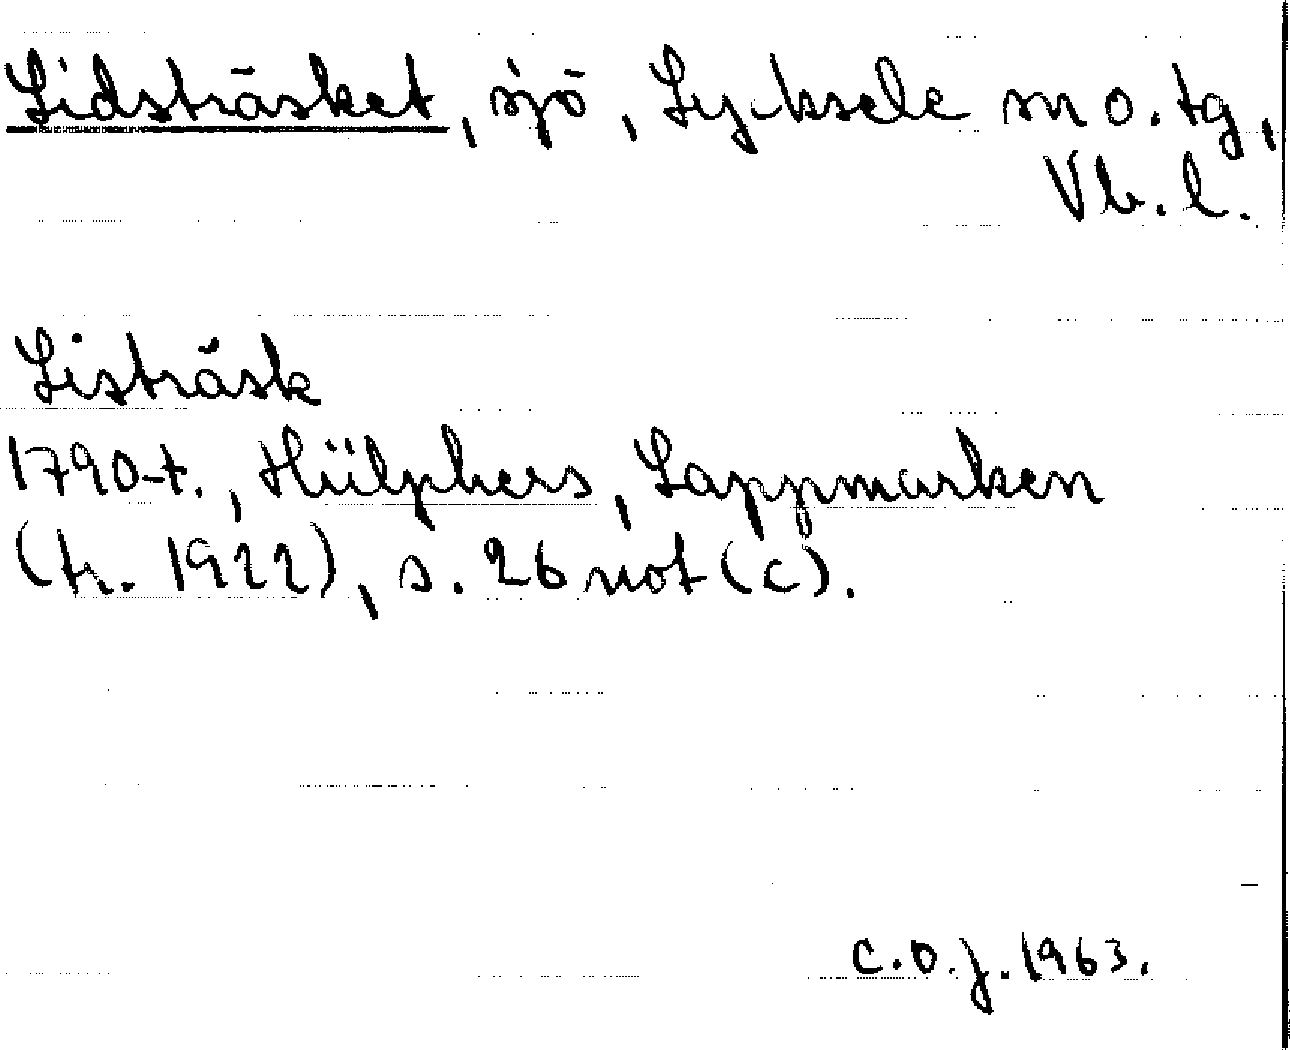 Lidsträsket, sjö, Lycksele sn o. tg,
Vb. l.
Listräsk
1790-t., Hülphers, Lappmarken
(tr. 1922), s. 26 not (c).
C.O.J. 1963.